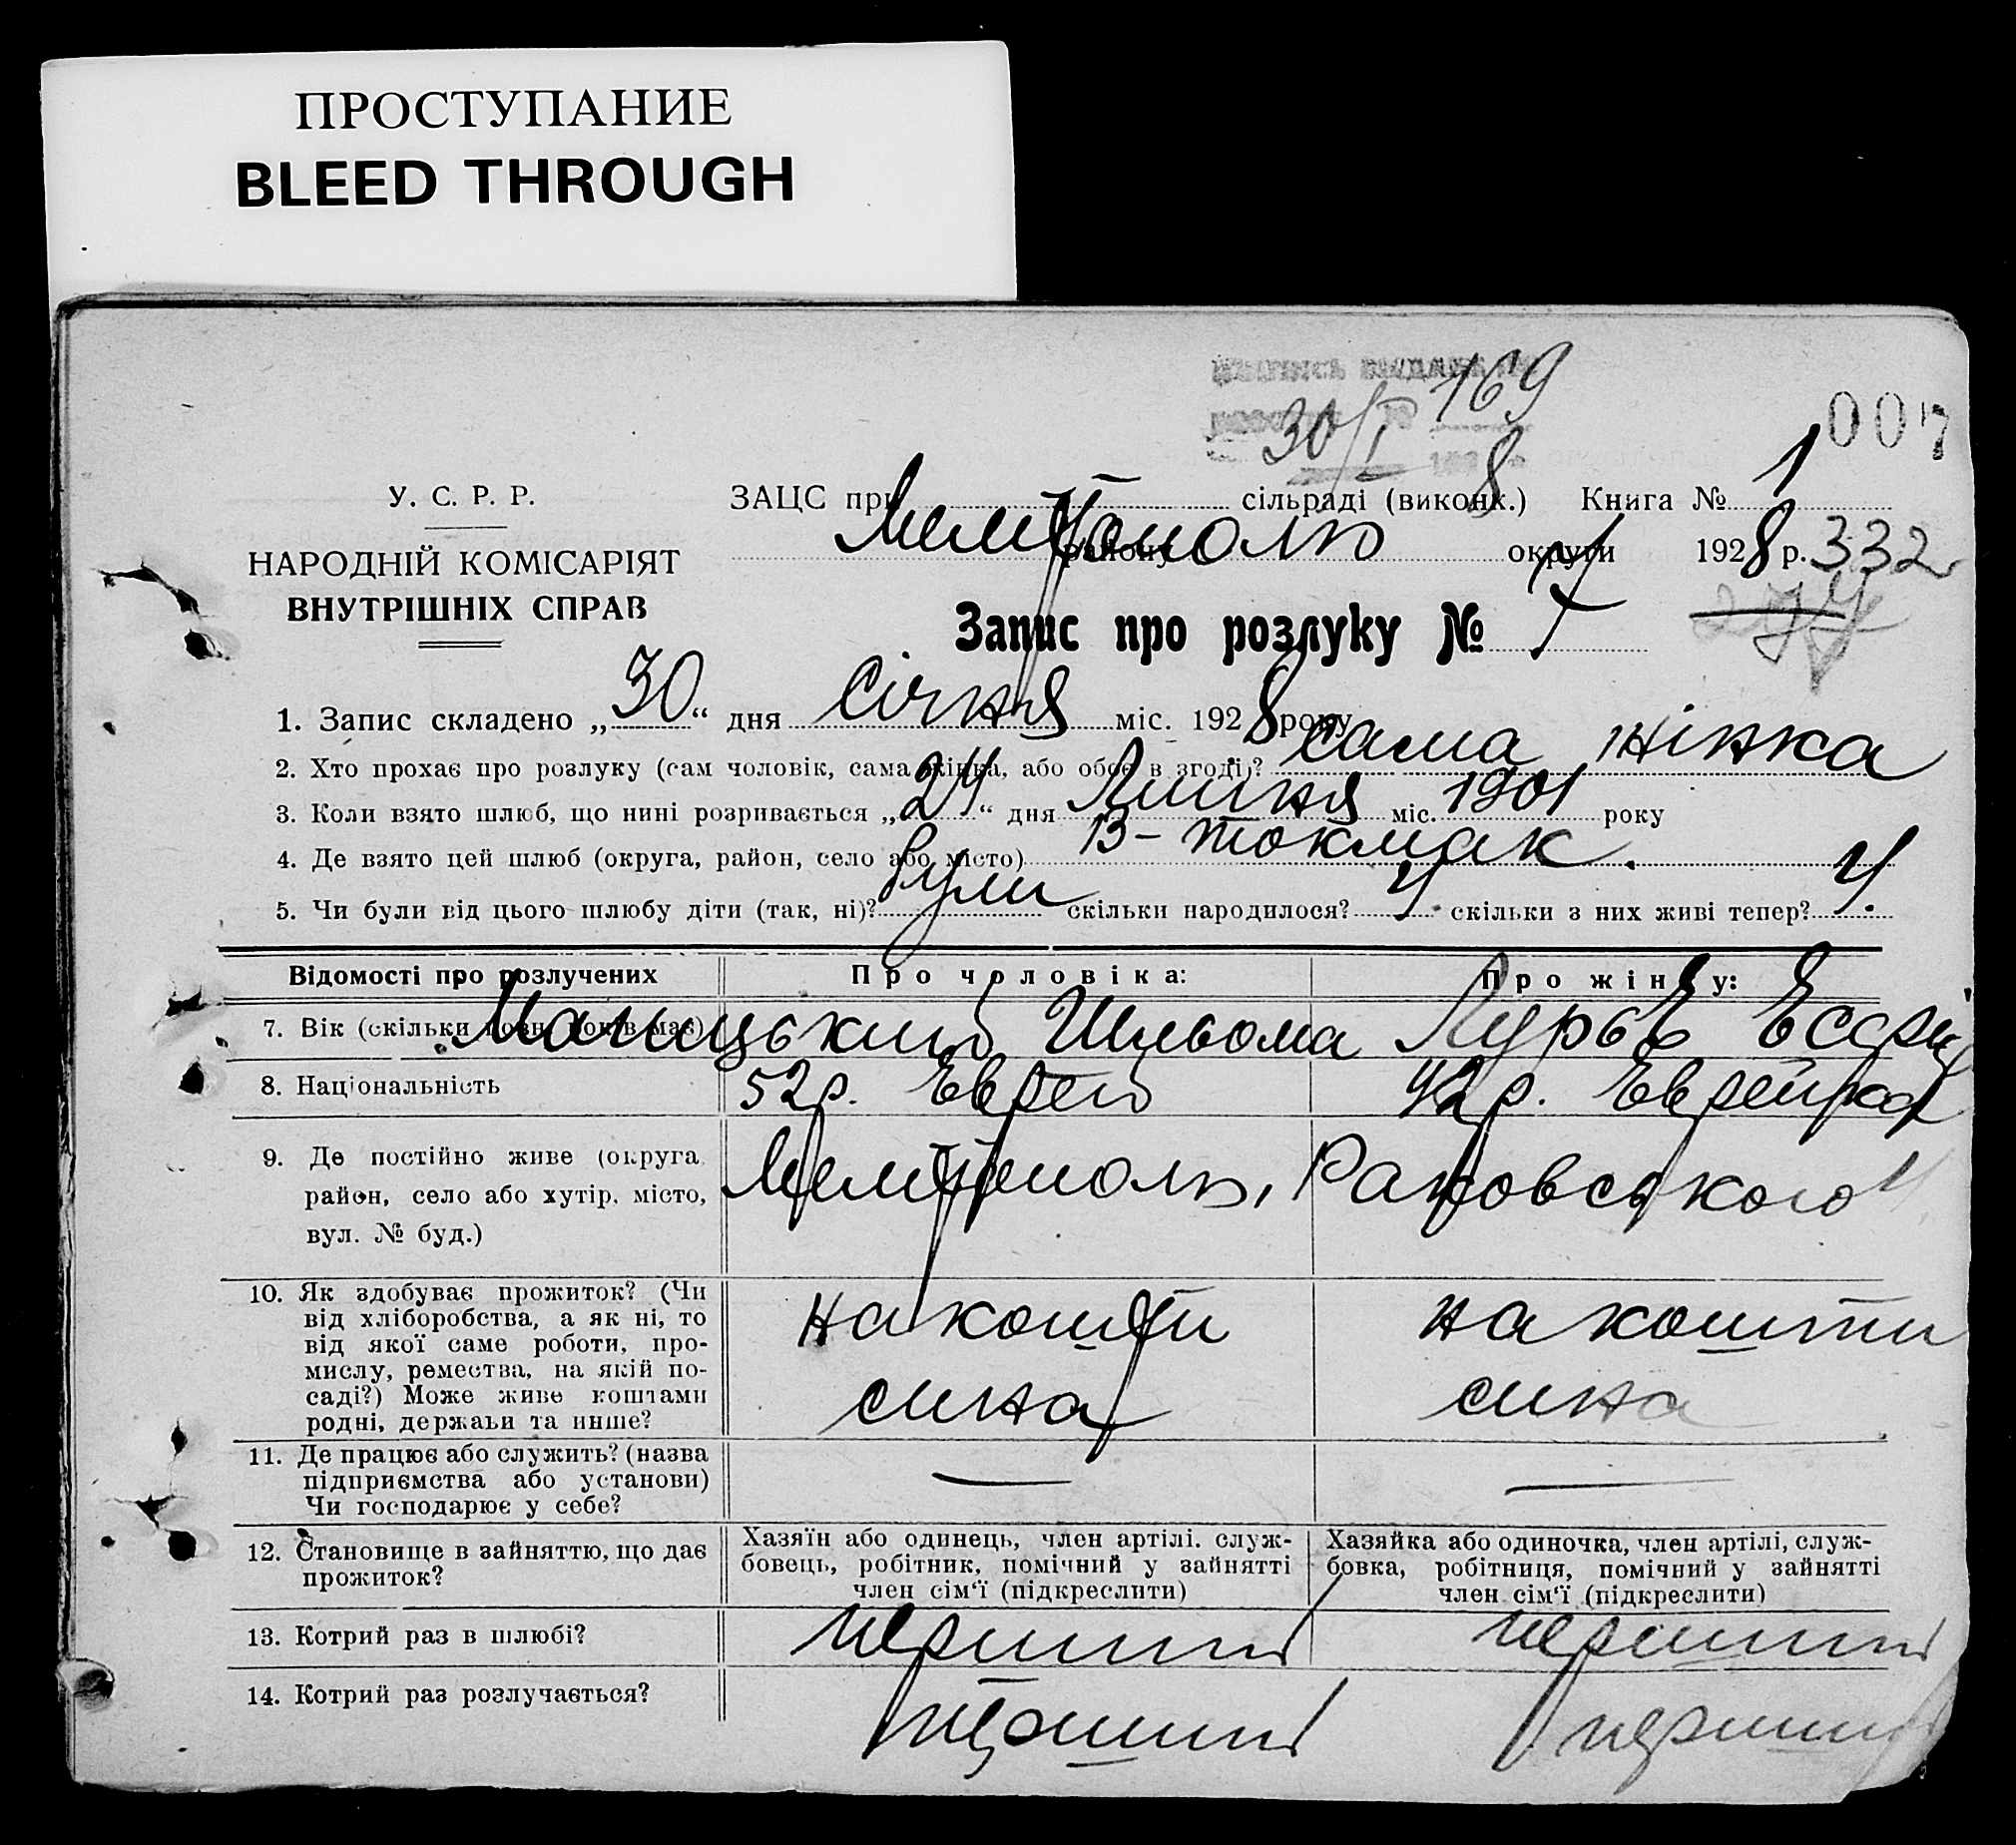 ПРОСТУПАНИЕ
BLEED THROUGH
169
30/I 8
007
У. С. Р. Р.
ЗАЦС при сільраді (виконк.) Книга № 1
Мелітополь
району округи 1928 р. 332
НАРОДНІЙ КОМІСАРІЯТ
ВНУТРІШНІХ СПРАВ
Запис про розлуку № 7
1. Запис складено „30“ дня Січня міс. 1928 року
2. Хто прохає про розлуку (сам чоловік, сама жінка, або обоє в згоді)? сама жінка
3. Коли взято шлюб, що нині розривається „24“ дня Липня міс. 1901 року
4. Де взято цей шлюб (округа, район, село або місто) В-Токмак.
5. Чи були від цього шлюбу діти (так, ні)? були скільки народилося? 4 скільки з них живі тепер? 4.
Відомості про розлучених Про чоловіка: Про жінку:
7. Вік (скільки повн. років має) Шльома
8. Національність 52р. Еврей 42р. Еврейка
9. Де постійно живе (округа, район, село або хутір, місто, вул. № буд.) Мелітополь, Раковського
10. Як здобуває прожиток? (Чи
від хліборобства, а як ні, то
від якої саме роботи, про-
мислу, ремества, на якій по-
саді?) Може живе коштами
родні, держави та инше?
на кошти
сина
на кошти
сина
11. Де працює або служить? (назва
підприємства або установи)
Чи господарює у себе?
12. Становище в зайняттю, що дає
прожиток?
Хазяїн або одинець, член артілі, служ-
бовець, робітник, помічний у зайнятті
член сім‘ї (підкреслити)
Хазяйка або одиночка, член артілі, служ-
бовка, робітниця, помічний у зайнятті
член сім‘ї (підкреслити)
13. Котрий раз в шлюбі? перший перший
14. Котрий раз розлучається? перший перший